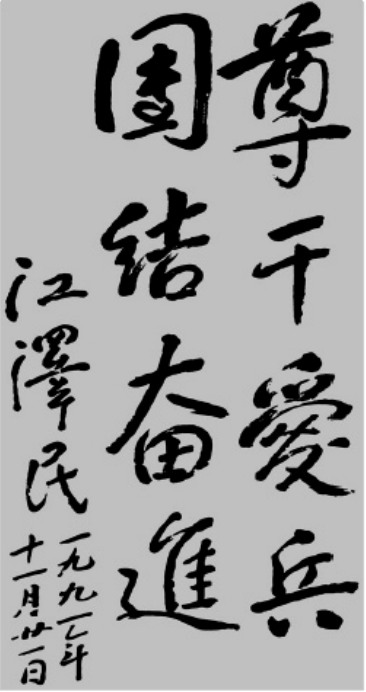 尊干愛兵
團结奋進
江澤民
一九九一年
十一月廿一日